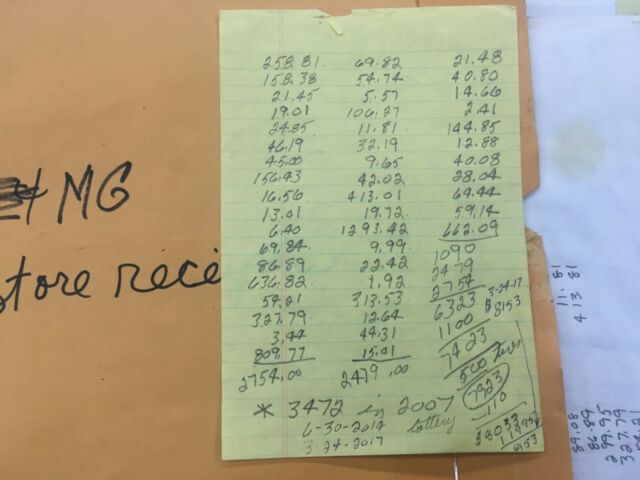 258.81 69.82 21.48
158.38 54.74 40.80
21.45 5.57 14.66
19.01 106.27 2.41
24.85 11.81 144.85
46.19 32.19 12.88
45.00 9.65 40.08
156.43 42.02 28.04
16.56 413.01 64.44
13.01 19.72 59.14
6.40 1293.42 662.09
69.84 9.99 1090
86.89 22.42 2479
636.82 1.92 2754
54.21 313.53 6323
3-24-17
$8153
327.79 12.64 1100
3.44 44.31 7423
809.77 15.01 500
2754.00 2479.00 7923
110
$8033
8153
* 3472 in 2007
lottery
6-30-2014
3-24-2017
MG
store rece
11.81
413.81
89.08
86.89
299.95
327.79